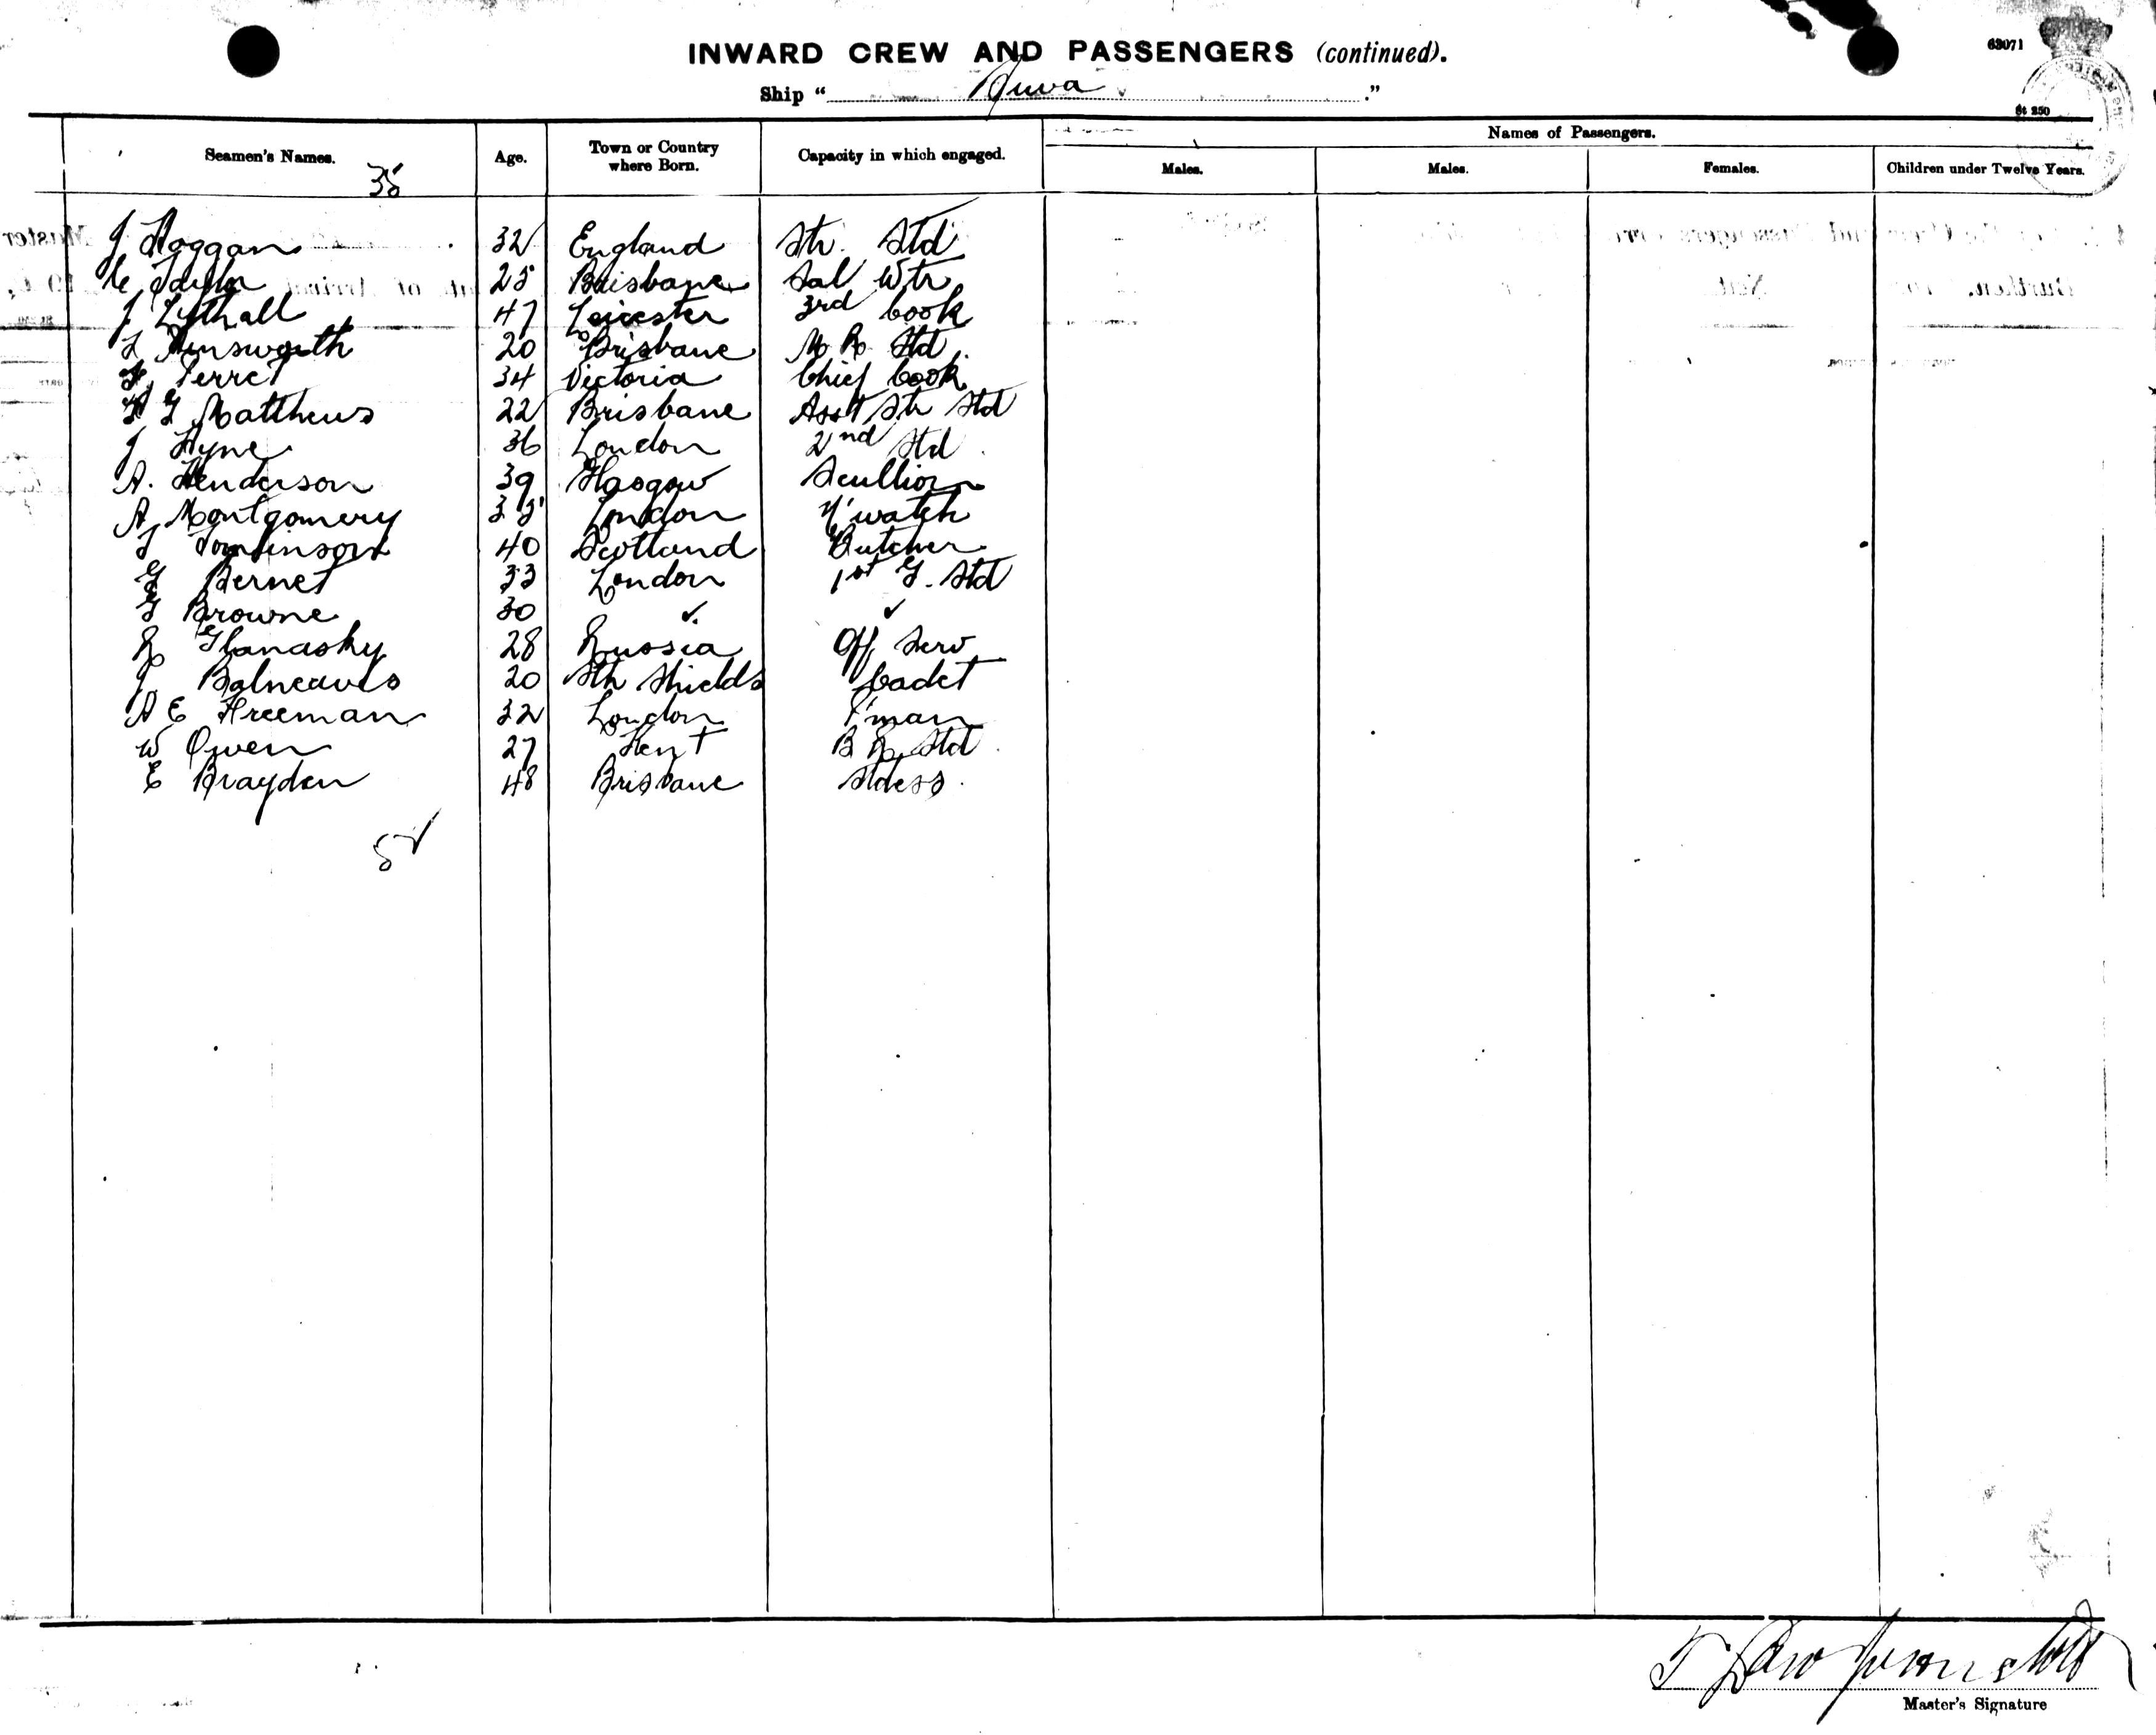 INWARD CREW AND PASSENGERS (continued).
63071
Ship " Suva ."
St 250
Seamen's Names. Age. Town or Country where Born. Capacity in which engaged. Names of Passengers.
Males. Males. Females. Children under Twelve Years.
35
J Hoggan 32 England Str. Std
C Taylor 25 Brisbane Sal Wtr
J Lythall 47 Leicester 3rd Cook
L Ainsworth 20 Brisbane M R Std
F Perret 34 Victoria Chief Cook
H G Matthews 22 Brisbane Asst Str Std
J Hyne 36 London 2nd Std
A. Henderson 39 Glasgow Scullion
A Montgomery 35 London N' watch
T Tomlinson 40 Scotland Butcher
G Bernet 33 London 1st G. Std
G Browne 30 ✓ ✓
R Glanasky 28 Russia Off Serv
J Balneaves 20 Sth Shields Cadet
A E Freeman 32 London F'man
W Owen 27 Kent B R Std
E Brayden 48 Brisbane Stdess
52
Master's Signature